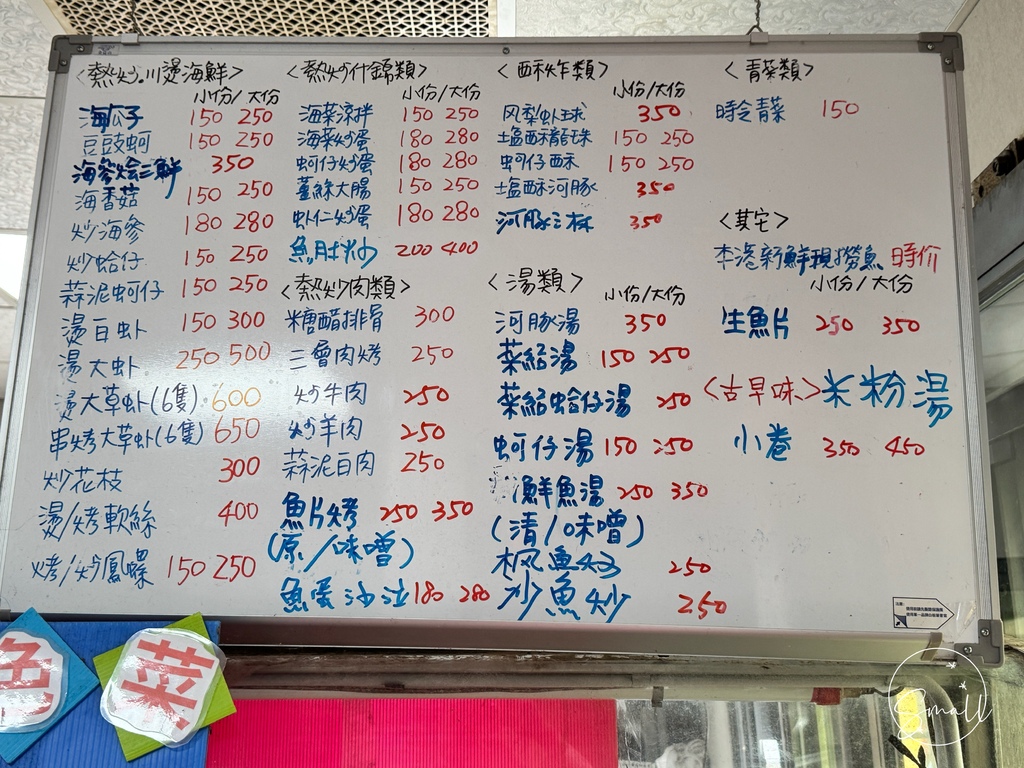 <熱炒.川燙海鮮>
小份/大份
海瓜子 150 250
豆豉蚵 150 250
海參燴三鮮 350
海香菇 150 250
炒海參 180 280
炒蛤仔 150 250
蒜泥蚵仔 150 250
燙白虾 150 300
燙大虾 250 500
燙大草虾(6隻) 600
串烤大草虾(6隻) 650
炒花枝 300
燙/烤軟絲 400
烤/炒鳳螺 150 250
<熱炒什錦類>
小份/大份
海菜涼拌 150 250
海菜炒蛋 180 280
蚵仔炒蛋 180 280
薑絲大腸 150 250
虾仁炒蛋 180 280
魚肚炒 200 400
<熱炒肉類>
糖醋排骨 300
三層肉烤 250
炒牛肉 250
炒羊肉 250
蒜泥白肉 250
魚片烤 250 350
(原/味噌)
魚蛋沙拉 180 280
<酥炸類>
小份/大份
风梨虾球 350
塩酥龍珠 150 250
蚵仔酥 150 250
塩酥河豚 350
河豚三杯 350
<湯類>
小份/大份
河豚湯 350
菜紹湯 150 250
菜紹蛤仔湯 250
蚵仔湯 150 250
鮮魚湯 250 350
(清/味噌)
炒魚炒 250
250
<青菜類>
時令青菜 150
<其它>
本港新鮮現撈魚 時价
小份/大份
生魚片 250 350
<古早味>米粉湯
小卷 350 450
魚
菜
Small